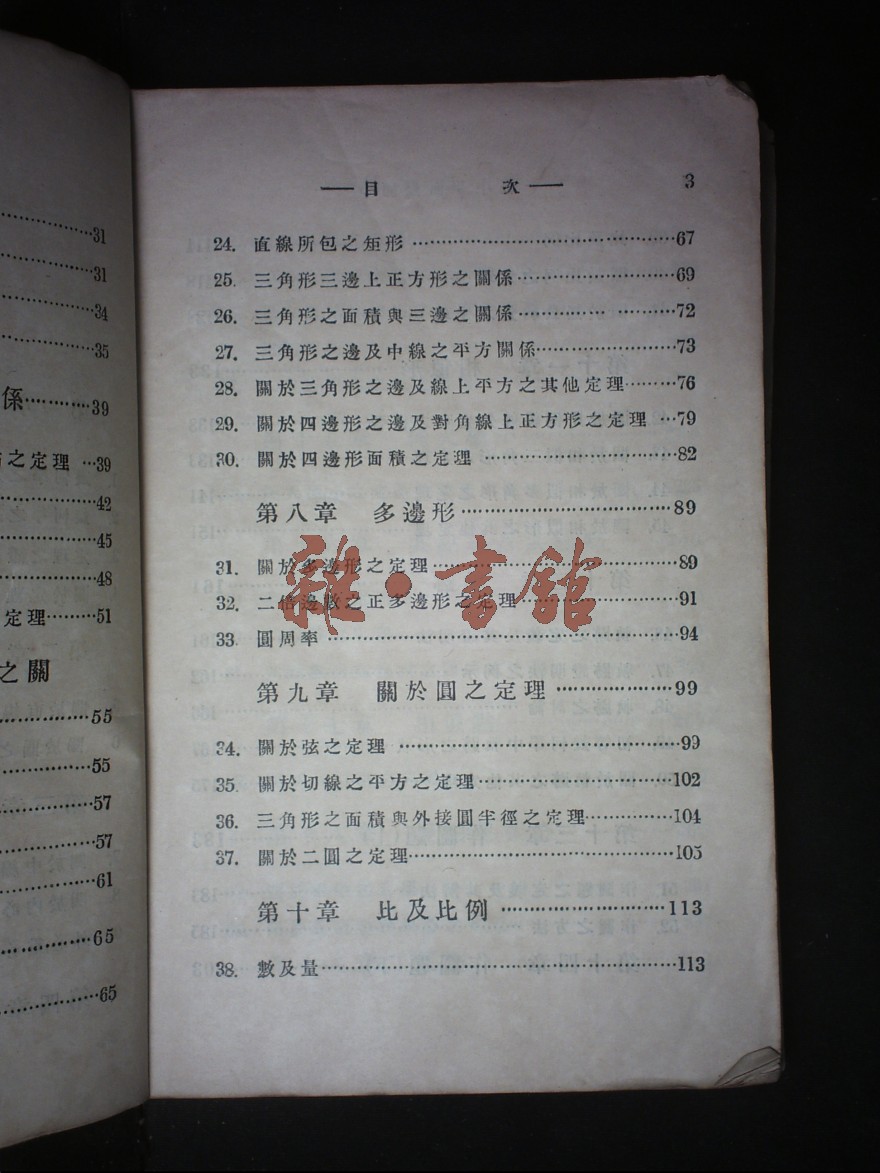 31
31
34
35
係…………39
之定理 …39
42
45
48
定理……51
之關
55
55
57
57
61
65
65
——目 次—— 3
24. 直線所包之矩形 ……………………67
25. 三角形三邊上正方形之關係……………69
26. 三角形之面積與三邊之關係…………… …………72
27. 三角形之邊及中線之平方關係……………73
28. 關於三角形之邊及線上平方之其他定理……76
29. 關於四邊形之邊及對角線上正方形之定理 …79
30. 關於四邊形面積之定理 ………………82
第八章 多邊形……………………89
31. 關於多邊形之定理……………………89
32. 二倍邊數之正多邊形之定理……………91
33. 圓周率……………………………94
第九章 關於圓之定理……………99
34. 關於弦之定理 ……………………99
35. 關於切線之平方之定理………………102
36. 三角形之面積與外接圓半徑之定理…………104
37. 關於二圓之定理……………………105
第十章 比及比例……………………113
38. 數及量……………………………113
雜·書館